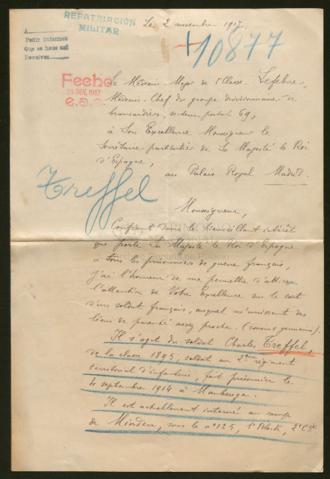 Le 2 novembre 1917.
REPATRIACIÓN
MILITAR
A
Pedir informes
Que se hace así
Devolver
+10877
Fecho
E.A.C.
Le Médecin Major de 1e Classe. Lefebvre,
Médecin-Chef du groupe divisionnaire de
brancardiers, secteur postal 69,
à Son Excellence Monsieur le
Secrétaire particulier de Sa Majesté le Roi
d'Espagne,
au Palais Royal Madrid
Treffel
Monseigneur,
Confiant dans le bienveillant intérêt
que porte Sa Majesté le Roi d'Espagne
à tous les prisonniers de guerre français,
j'ai l'honneur de me permettre d'attirer
l'attention de Votre Excellence sur le sort
d'un soldat français, auquel m'unissent des
liens de parenté assez proche (cousin germain).
Il s'agit du soldat Charles Treffel
de la classe 1895, soldat au 2e régiment
territorial d'infanterie, fait prisonnier le
4 septembre 1914 à Maubeuge.
Il est actuellement interné au camp
de Minden, sous le n° 125, 1er Block, 2e Cie.